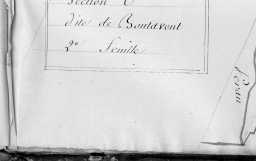 Section C
dite de Boutavent
2e Feuille